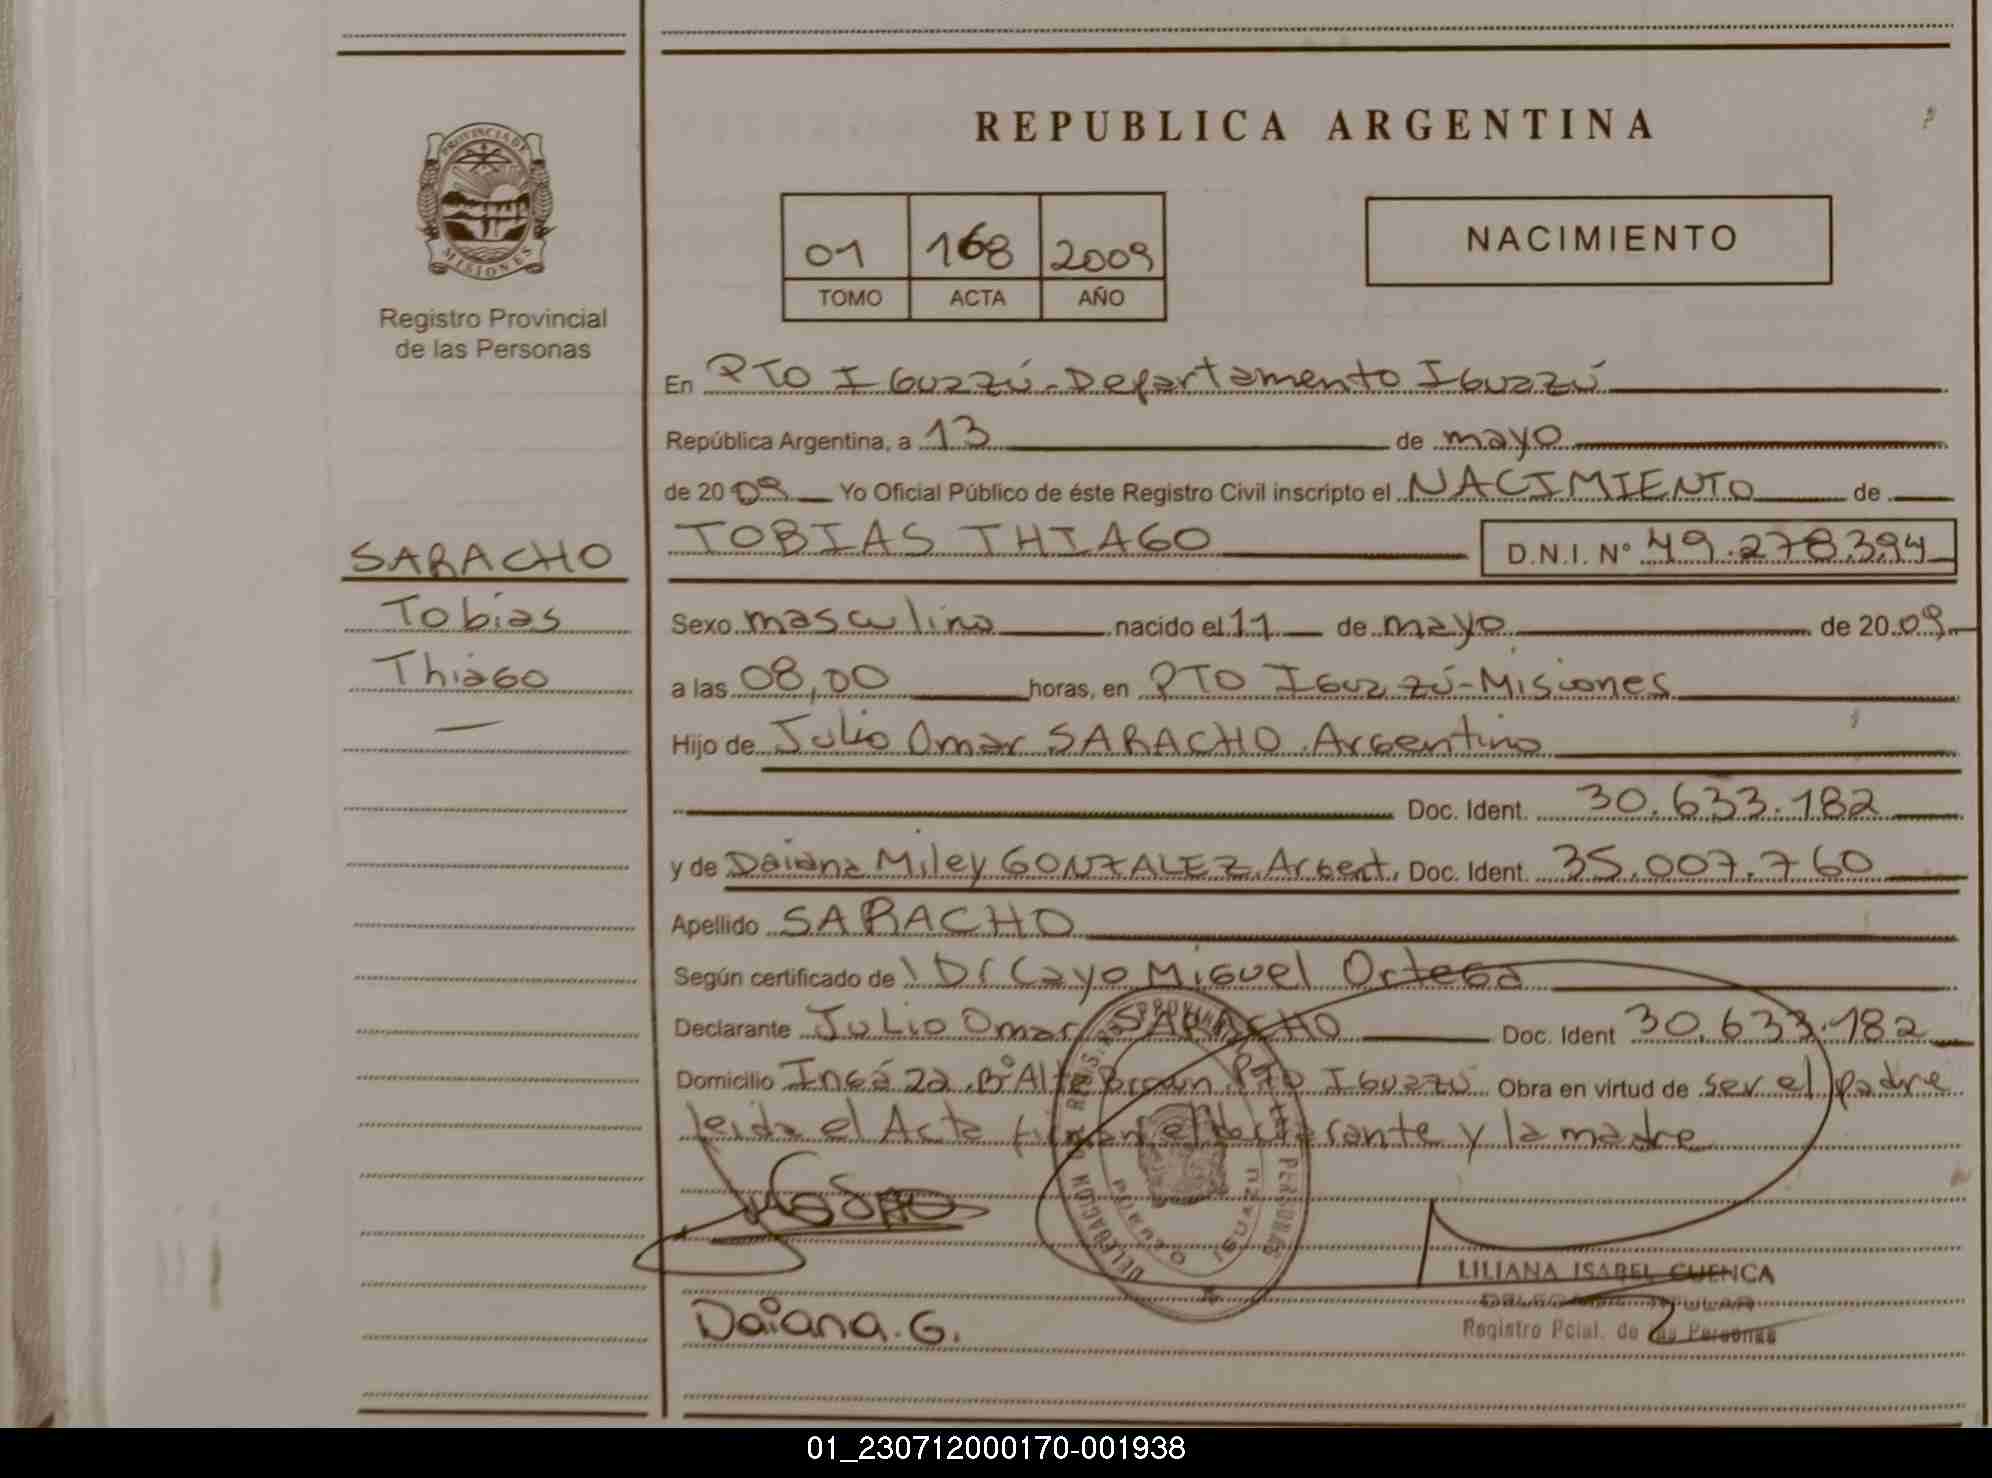 REPUBLICA ARGENTINA
PROVINCIA DE
MISIONES
Registro Provincial
de las Personas
01 168 2009
TOMO ACTA AÑO
NACIMIENTO
En PTO IGuazú-Departamento IGuazú
República Argentina, a 13 de mayo
de 20 09 Yo Oficial Público de éste Registro Civil inscripto el NACIMIENTO de
SARACHO
Tobias
Thiago
TOBIAS THIAGO D.N.I. N° 49.278.394
Sexo masculino nacido el 11 de mayo de 20 09
a las 08,00 horas, en PTO IGuazú-Misiones
Hijo de Julio Omar SARACHO Argentino
Doc. Ident. 30.633.182
y de Daiana Miley GONZALEZ, Argent. Doc. Ident. 35.007.760
Apellido SARACHO
Según certificado de Dr Cayo Miguel Ortega
Declarante Julio Omar SARACHO Doc. Ident 30.633.182
Domicilio B° Alte Brown PTO IGuazú Obra en virtud de ser el padre
leida el Acta firman el declarante y la madre
DELEGACION PERSONAS
PUERTO IGUAZU
LILIANA ISABEL CUENCA
DELEGADA TITULAR
Registro Pcial. de las Personas
Daiana. G.
01_230712000170-001938